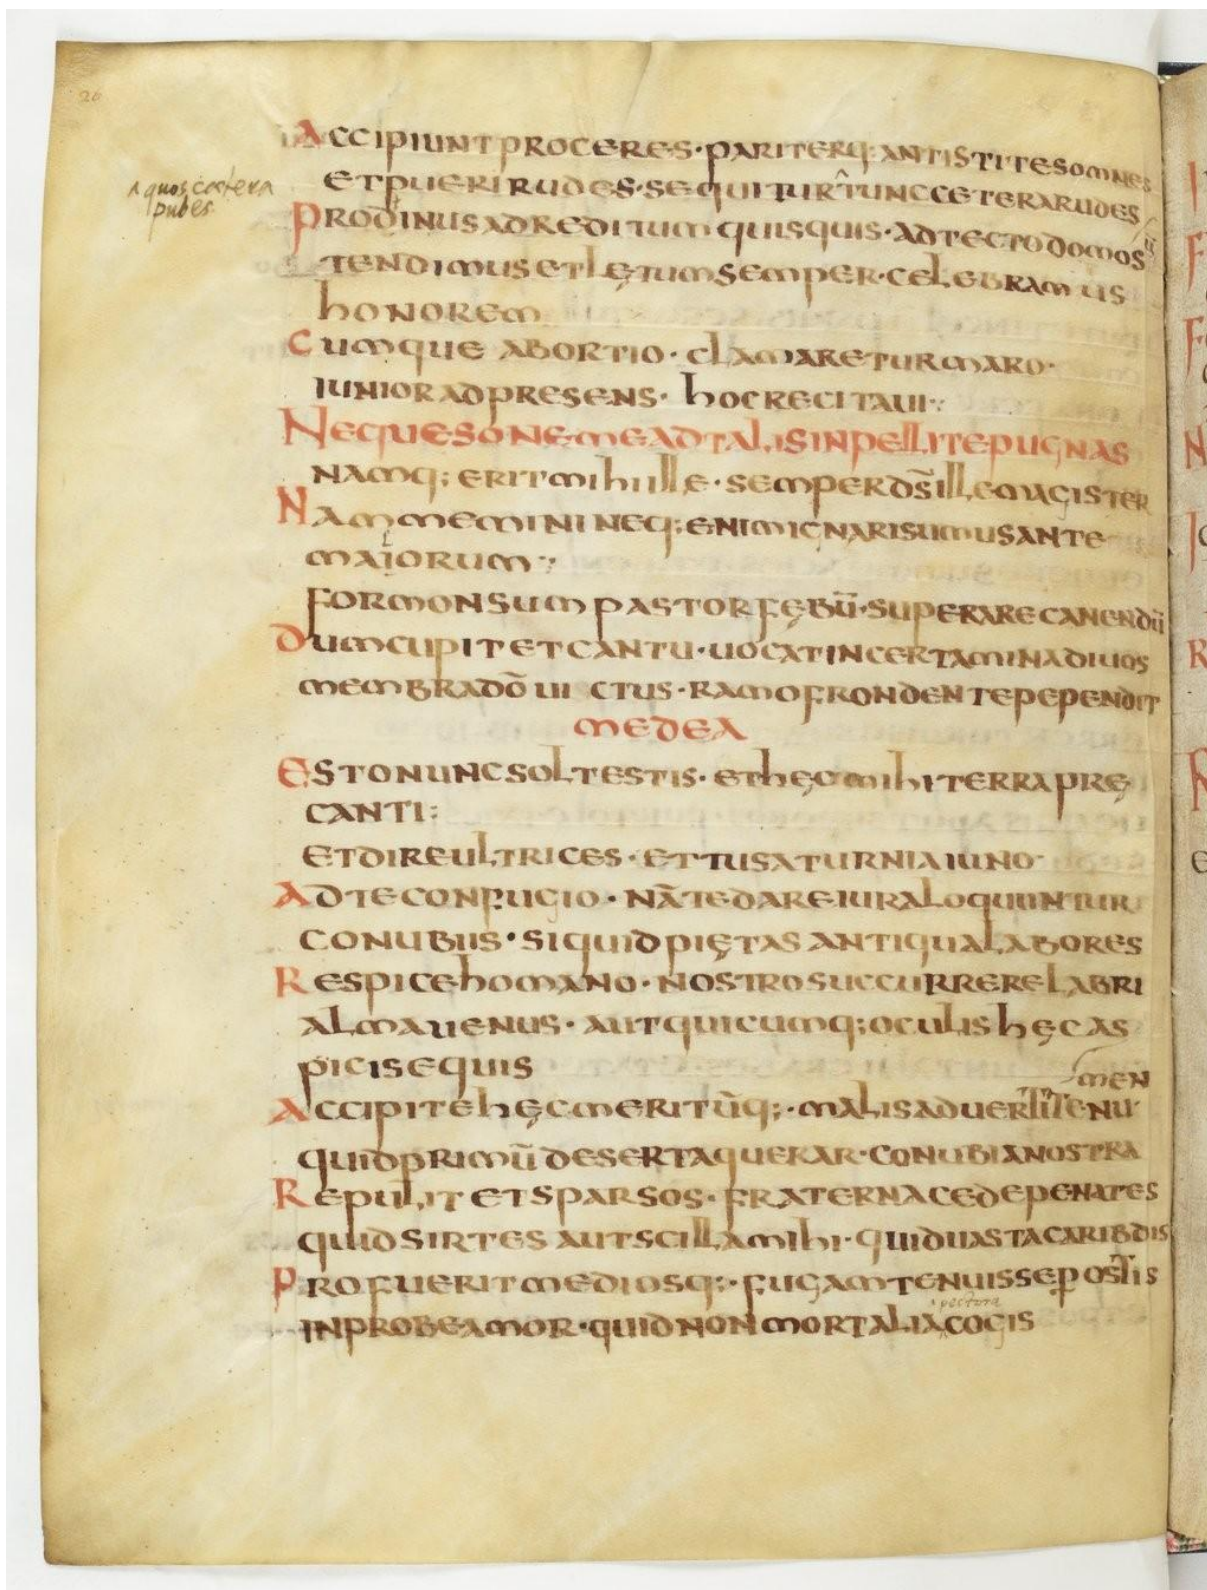 26
ACCIPIUNT PROCERES · PARITERQ; ANTISTITES OMNES
A quos cætera
pubes
ET PUERI RUDES · SEQUITUR TUNC CETERA RUDES
PROTINUS AD REDITUM QUISQUIS · AD TECTO DOMOS
TENDIMUS ET LĘTUM SEMPER · CELEBRAMUS
HONOREM
CUMQUE ABORTIO · CLAMARETUR MARO ·
IUNIOR AD PRESENS · HOC RECITAUI :·
NEQUESO NE ME AD TALIS INPELLITE PUGNAS
NAMQ; ERIT MIHI ILLE · SEMPER DS̄ ILLE MAGISTER
NAM MEMINI NEQ; ENIM IGNARI SUMUS ANTE
MAIORUM :·
FORMONSUM PASTOR FĘBŪ · SUPERARE CANENDŪ
DUM CUPIT ET CANTU · UOCAT IN CERTAMINA DIUOS
MEMBRA DŌ UICTUS · RAMO FRONDENTE PEPENDIT
MEDEA
ESTO NUNC SOL TESTIS · ET HĘC MIHI TERRA PRĘ
CANTI :
ET DIRE ULTRICES · ET TU SATURNIA IUNO ·
AD TE CONFUGIO · NĀ TE DARE IURA LOQUUNTUR
CONUBIIS · SI QUID PIĘTAS ANTIQUA LABORES
RESPICE HOMANO · NOSTRO SUCCURRERE LABRI
ALMA UENUS · AUT QUICUMQ; OCULIS HĘC AS
PICIS EQUIS
MEN
ACCIPITE HĘC MERITŪQ; · MALIS ADUERTITE NU
QUID PRIMŪ DESERTA QUERAR · CONUBIA NOSTRA
REPULIT ET SPARSOS · FRATERNA CEDE PENATES
QUID SIRTES AUT SCILLA MIHI · QUID UASTA CARIBDIS
PROFUERIT MEDIOSQ; · FUGAM TENUISSE P OSTIS
pectora
INPROBE AMOR · QUID NON MORTALIA COGIS